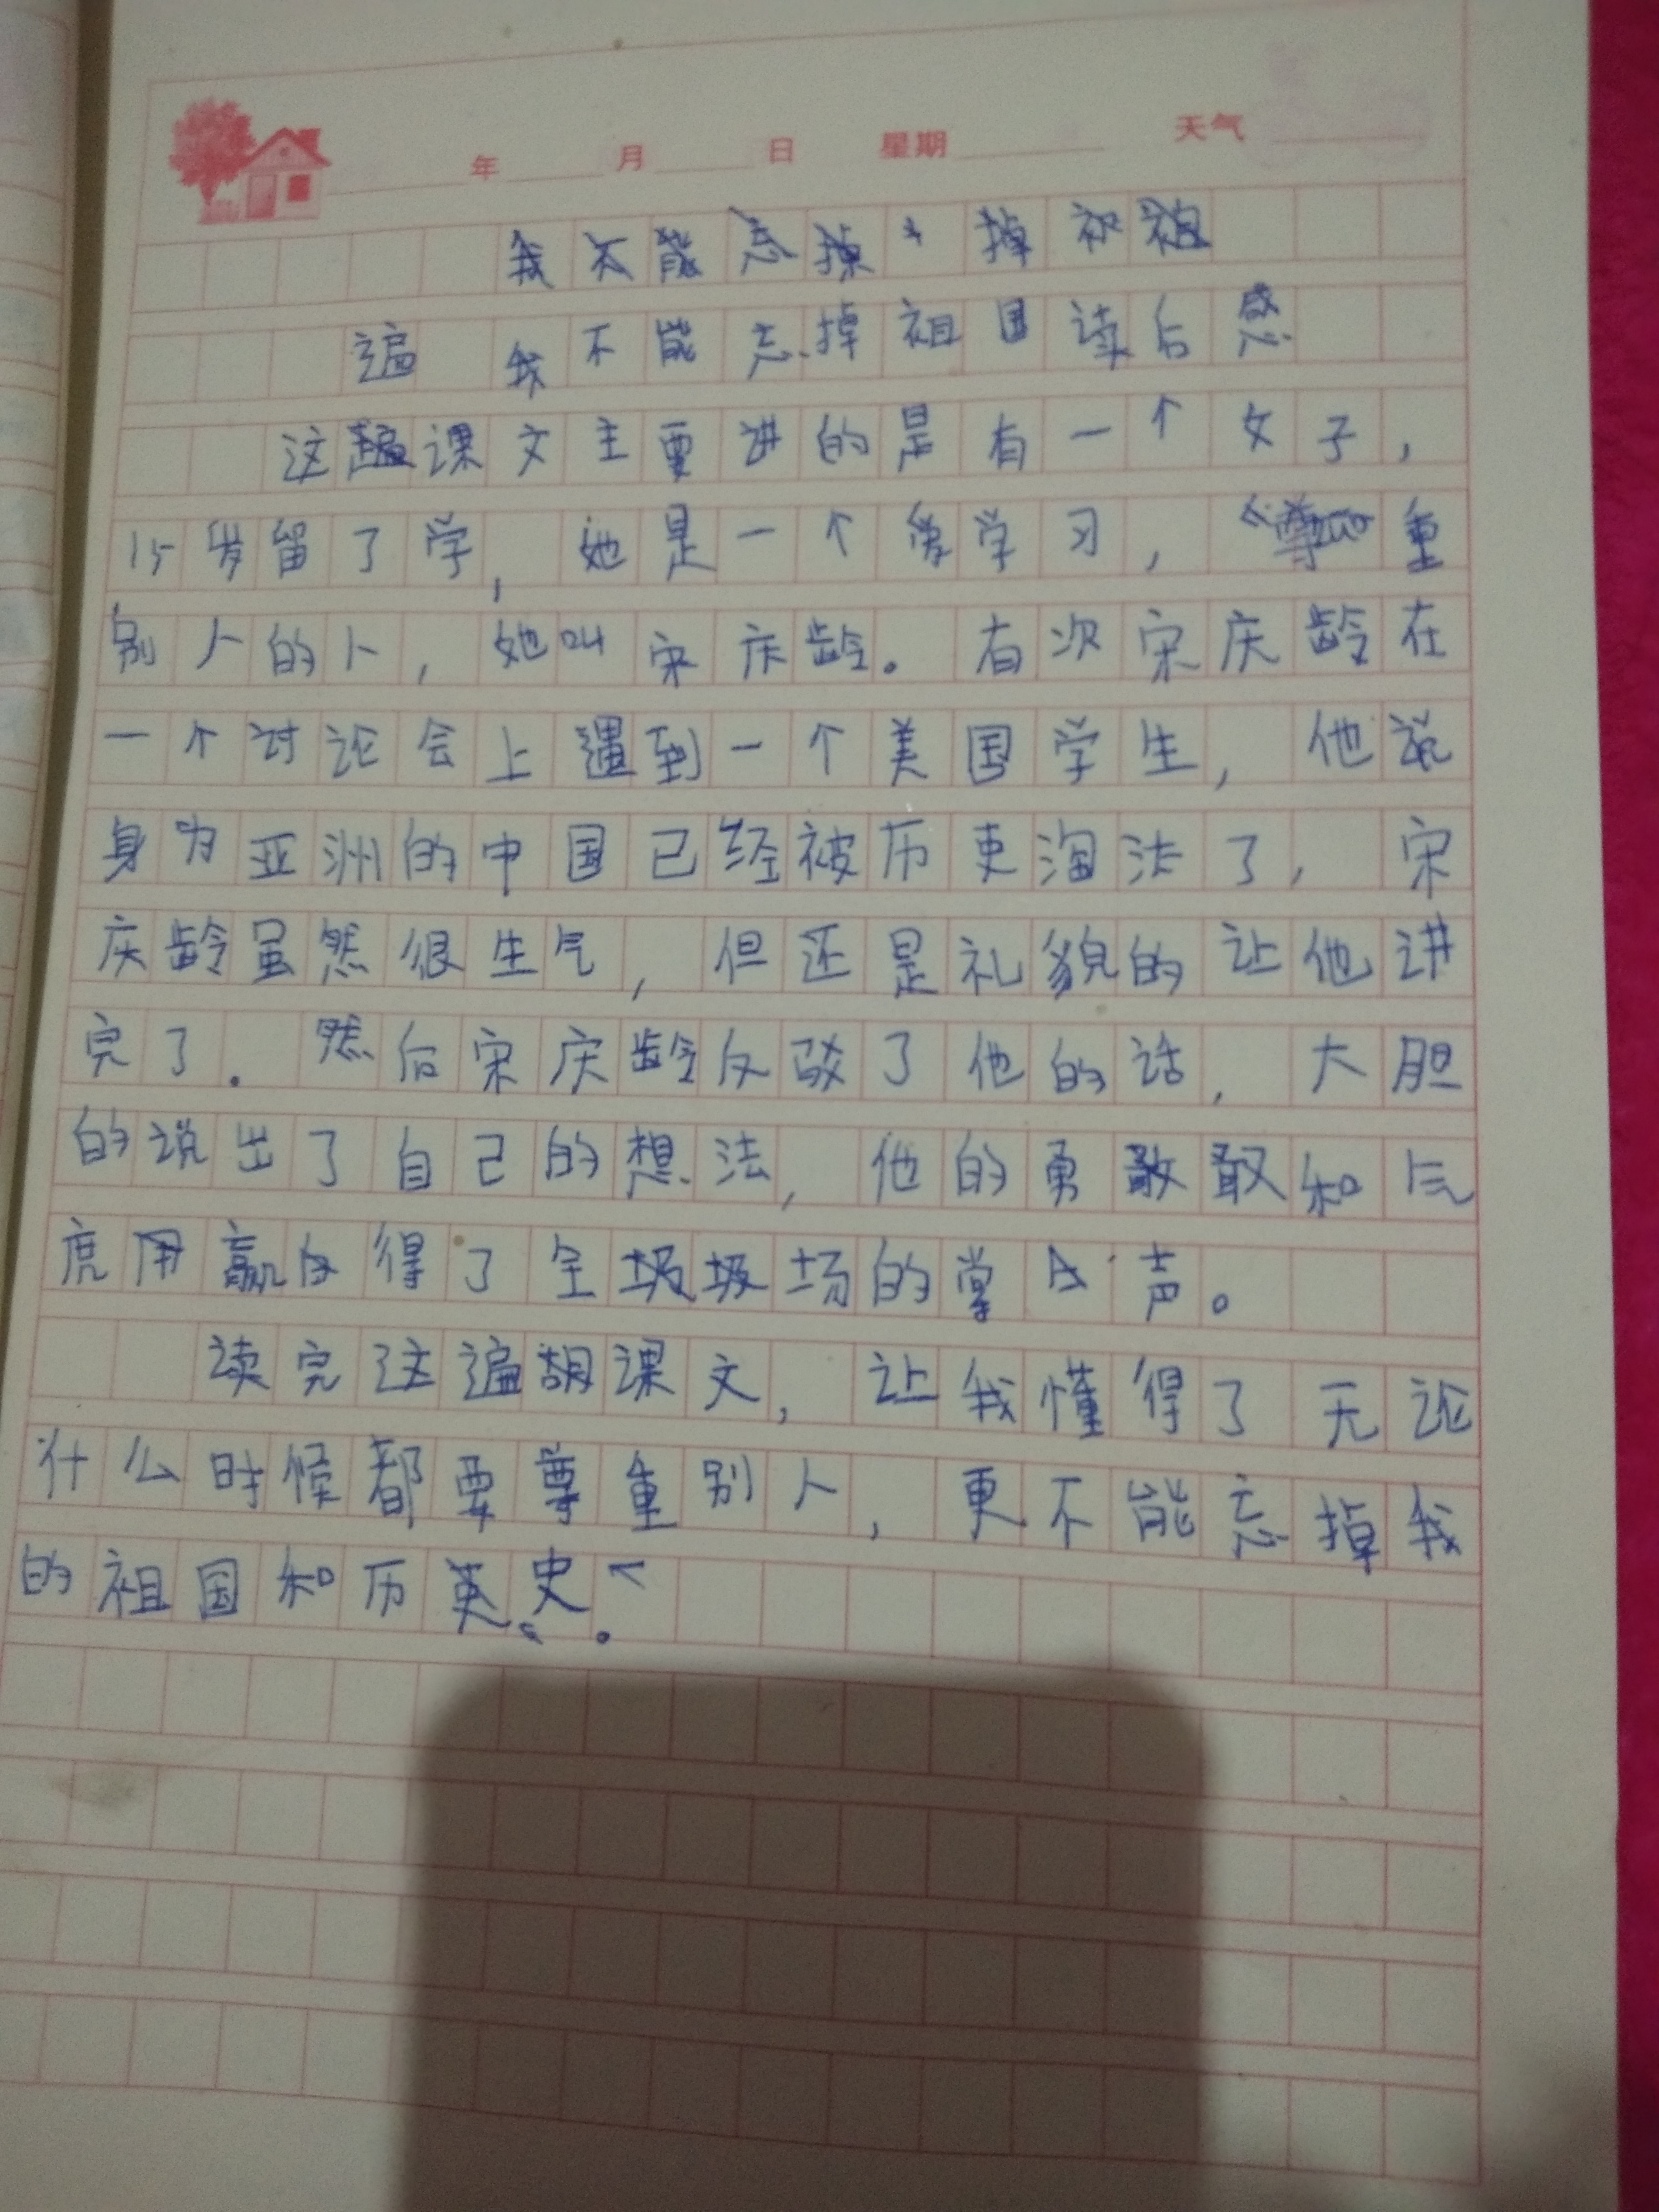 年 月 日 星期 天气
我不能忘掉 掉祖
遍 我不能忘掉祖国读后感
这遍课文主要讲的是有一个女子，
15岁留了学，她是一个爱学习，尊重
别人的人，她叫宋庆龄。有次宋庆龄在
一个讨论会上遇到一个美国学生，他说
身为亚洲的中国已经被历史淘汰了，宋
庆龄虽然很生气，但还是礼貌的让他讲
完了。然后宋庆龄反驳了他的话，大胆
的说出了自己的想法，他的勇敢敢和气
度用赢得了全场场的掌声。
读完这遍课文，让我懂得了无论
什么时候都要尊重别人，更不能忘掉我
的祖国和历史。